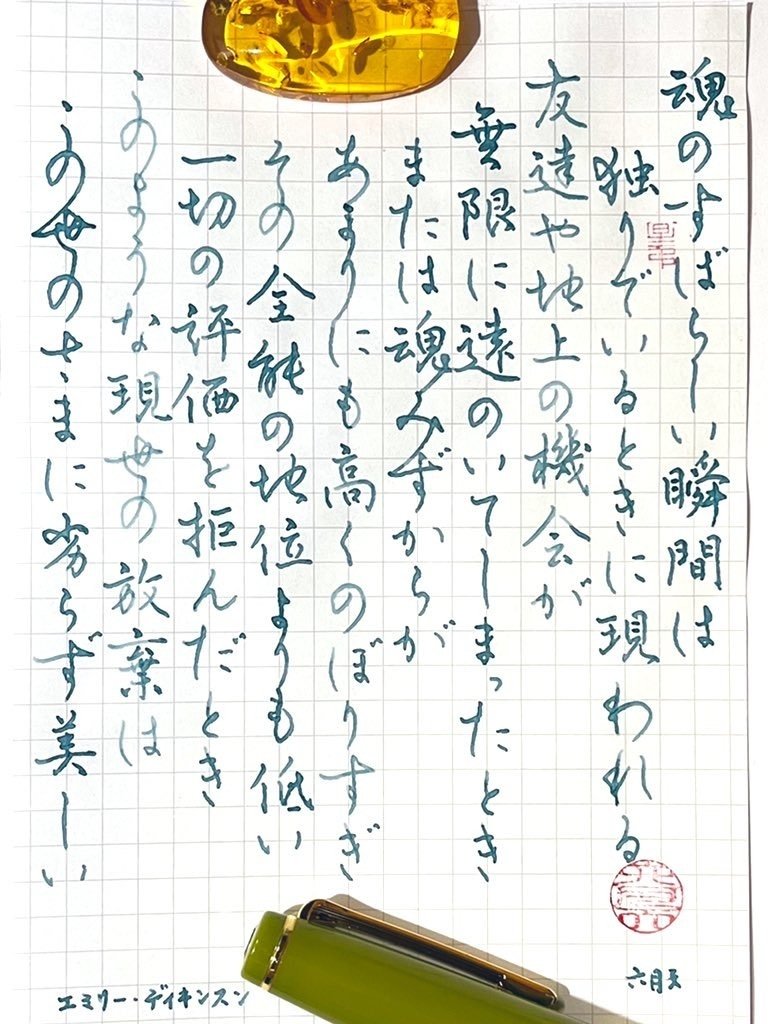 魂のすばらしい瞬間は
独りでいるときに現われる
友達や地上の機会が
無限に遠のいてしまったとき
または魂みずからが
あまりにも高くのぼりすぎ
その全能の地位よりも低い
一切の評価を拒んだとき
このような現世の放棄は
この世のさまに劣らず美しい
エミリー・ディキンスン
六月